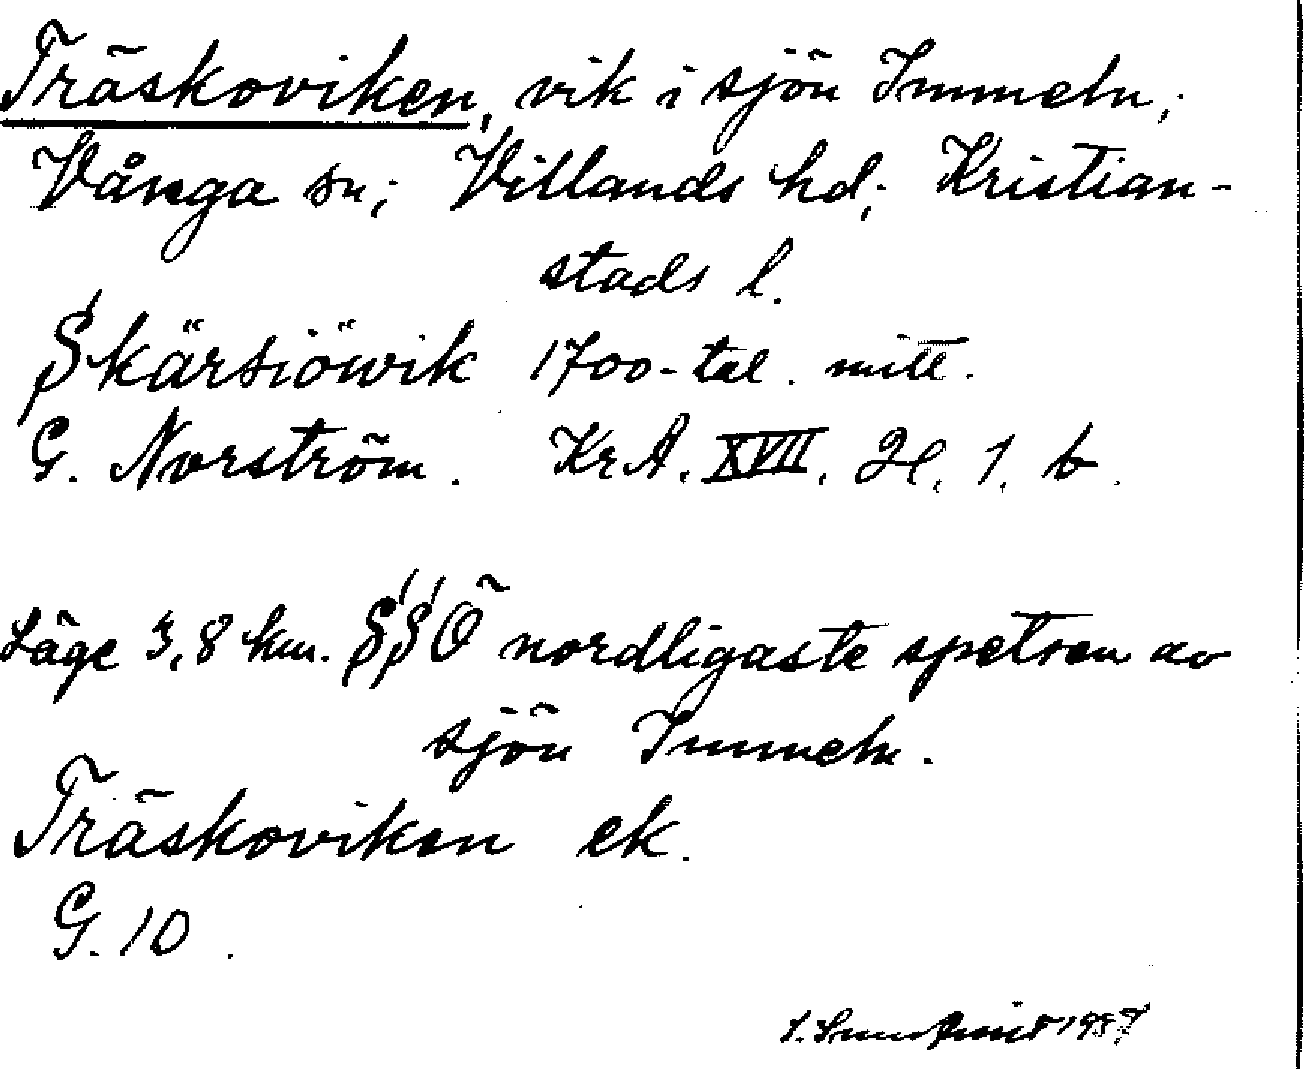 Träskoviken, vik i sjön Immeln;
Vånga sn; Villands hd; Kristian-
stads l.
Skärsiöwik 1700-tal. mitt.
G. Norström. KrA. XVII. Nl. 1. b.
Läge 3,8 km. SSÖ nordligaste spetsen av
sjön Immeln.
Träskoviken ek.
G. 10.
1957